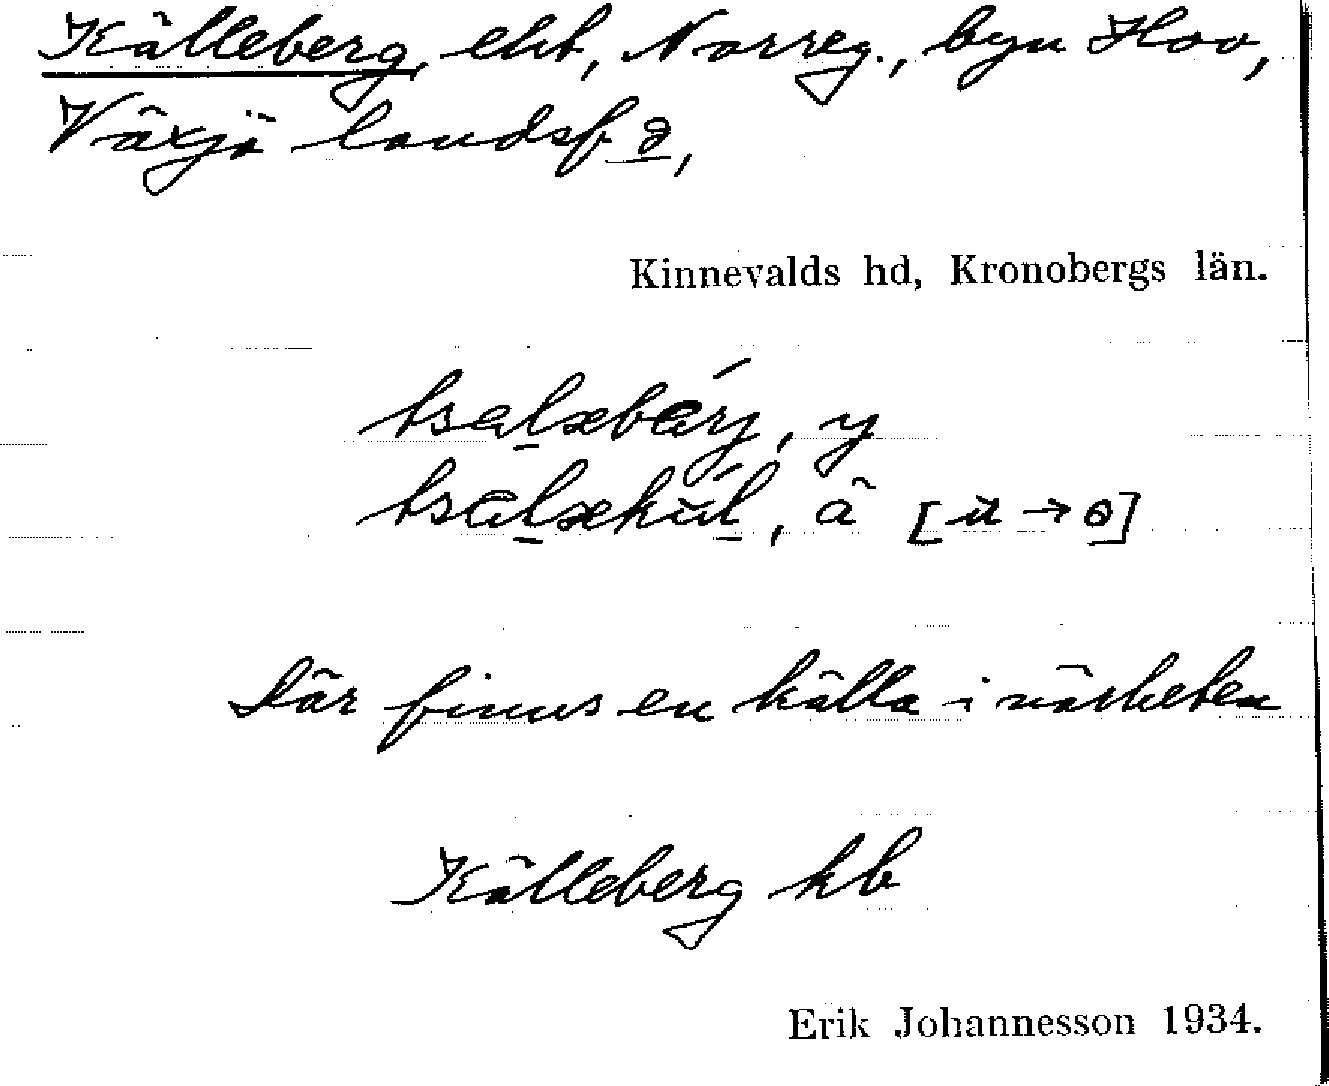 Källeberg, eht, Norreg., byn Hov,
Växjö landsf d,
Kinnevalds hd, Kronobergs län.
tsalsebærj, y
tsalsekul, å [u → ɵ]
Där finns en källa i närheten
Källeberg kb
Erik Johannesson 1934.